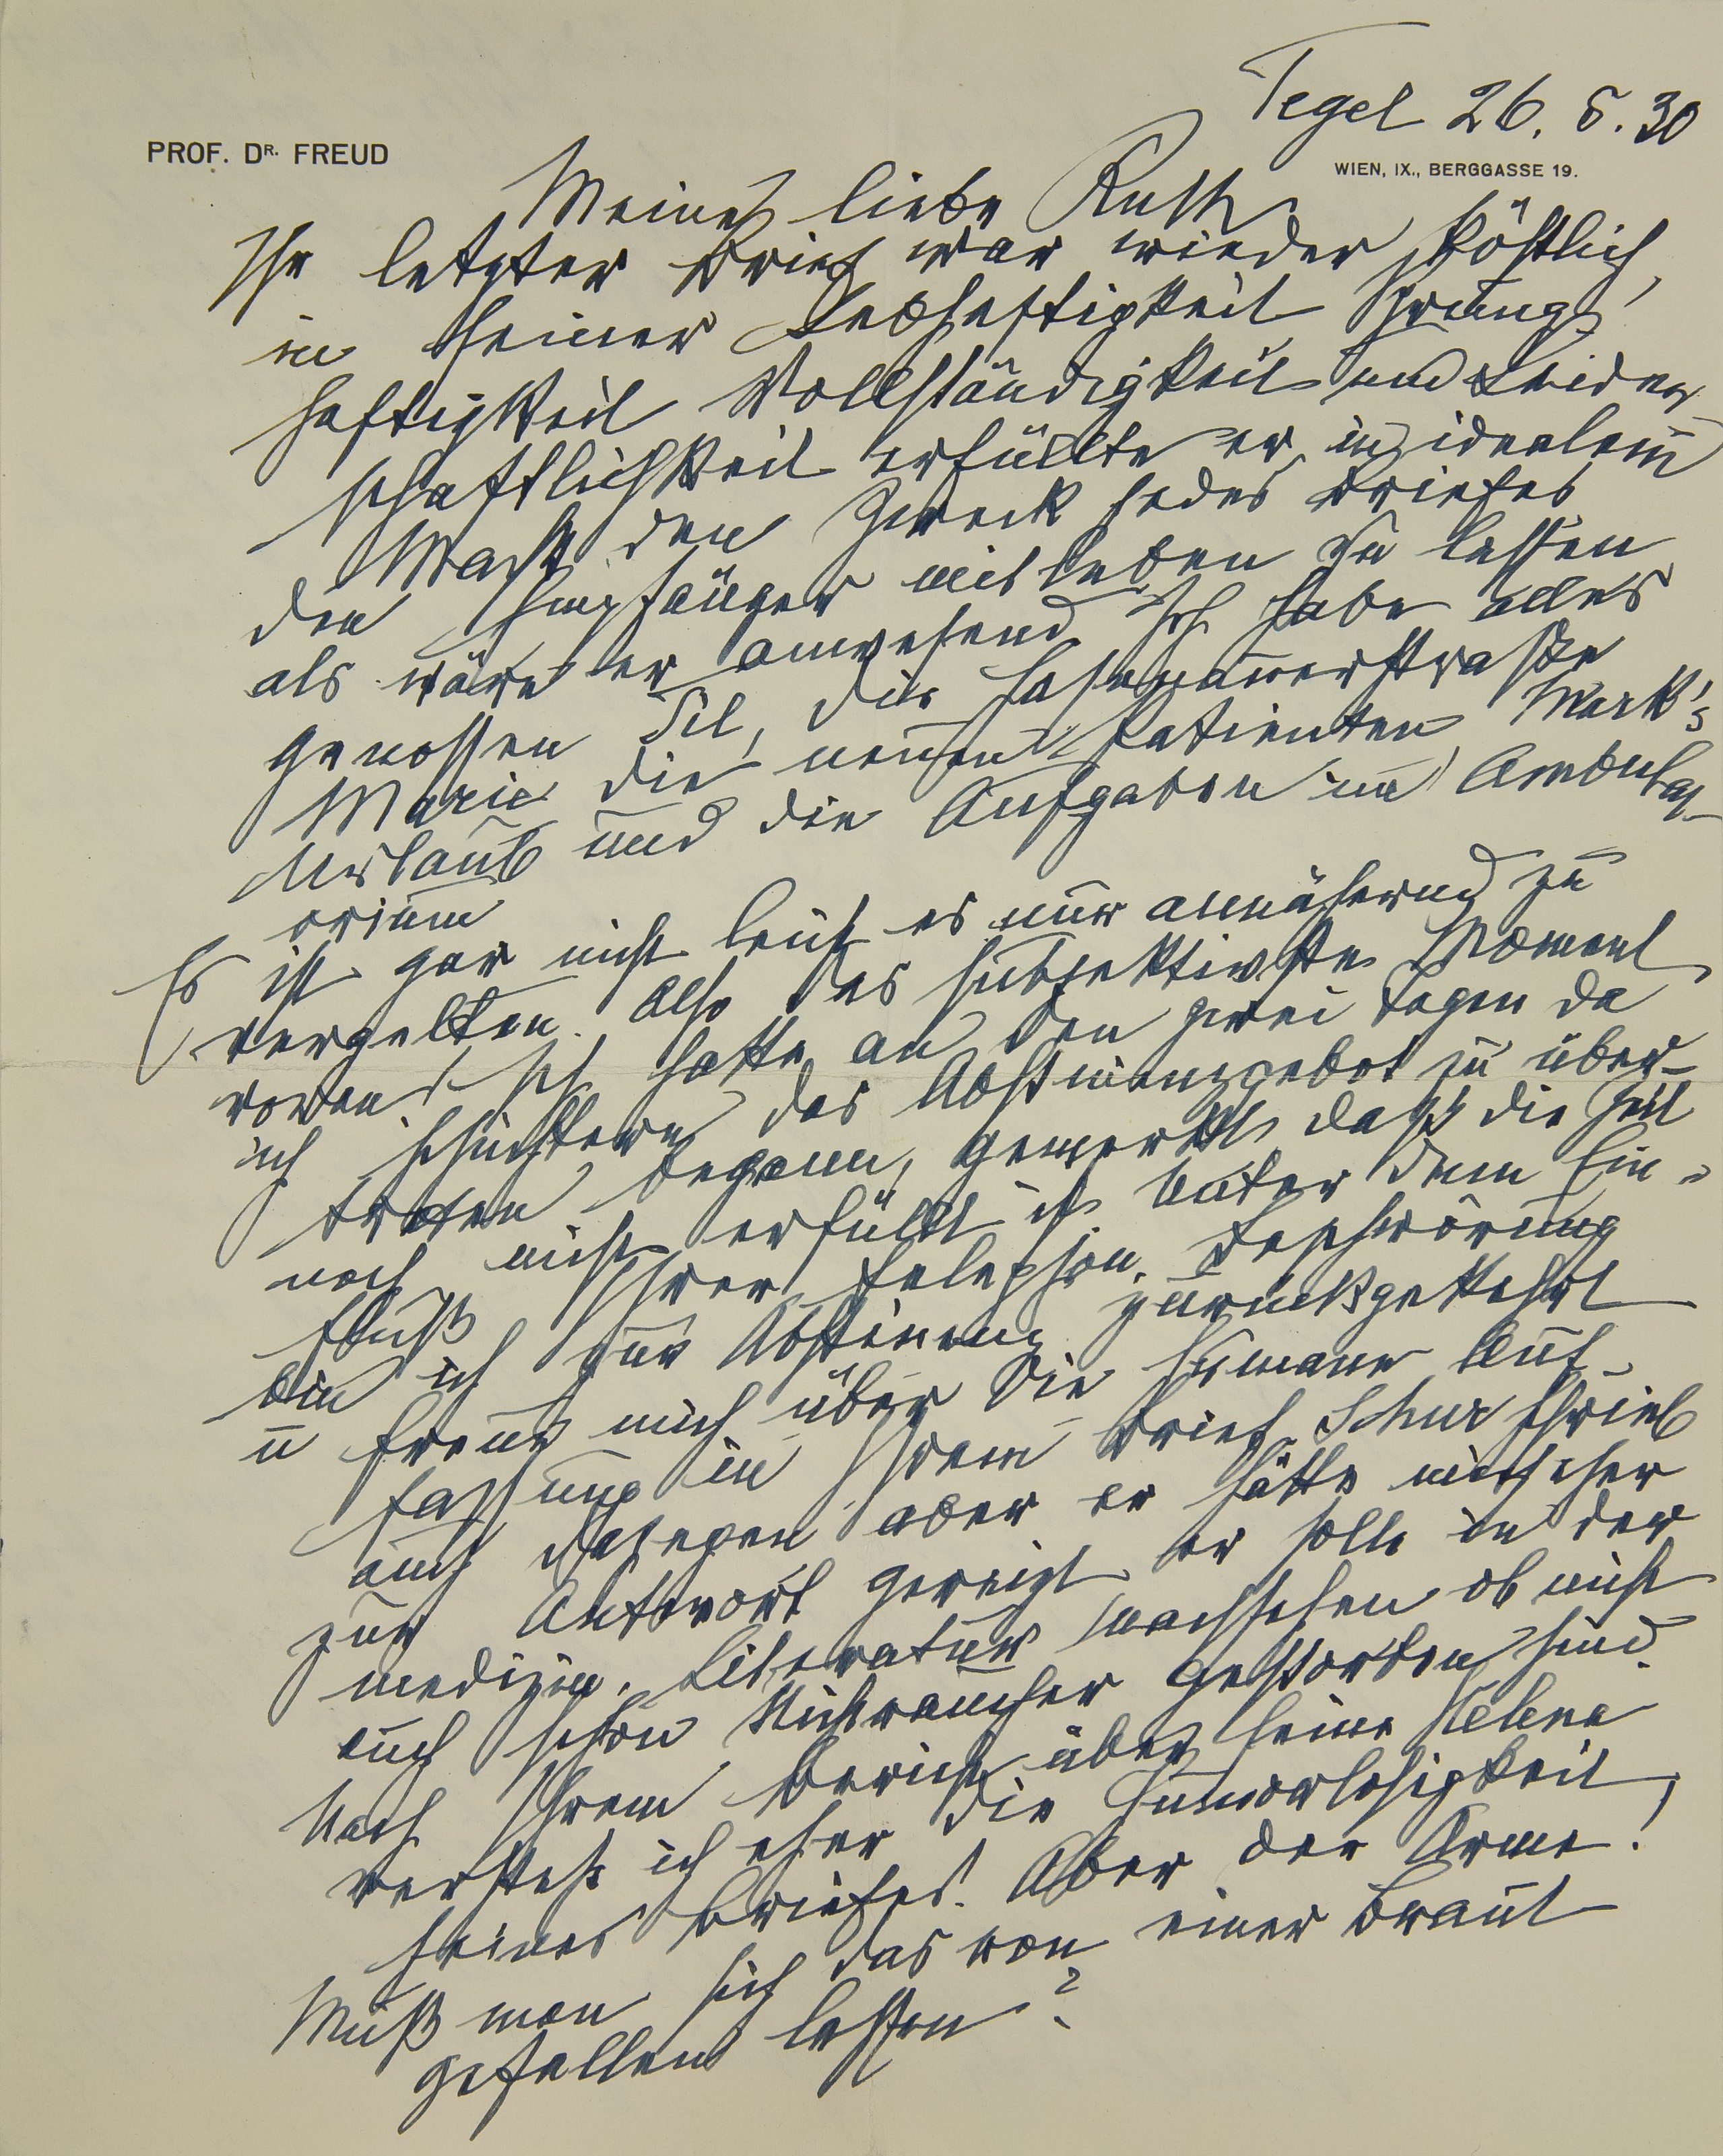 Tegel 26. 5. 30
PROF. DR. FREUD
WIEN, IX., BERGGASSE 19.
Meine liebe Ruth
Ihr letzter Brief war wieder köstlich,
in seiner Lebhaftigkeit Sprung
haftigkeit Vollständigkeit und Leiden
schaftlichkeit erfüllte er in idealem
Maß den Zweck jedes Briefes
den Empfänger mitleben zu lassen
als wäre er anwesend. Ich habe alles
genossen Til, die Hasenauerstraße
Marie die neuen Patienten Mark's
Urlaub und die Aufgaben im Ambulat
orium
Es ist gar nicht leicht es nur annähernd zu
vergelten. Also das subjektivste Moment
voran! Ich hatte an den zwei Tagen da
ich schüchtern das Abstinenzgebot zu über-
treten begann, gemerkt daß die Zeit
noch nicht erfüllt ist. Unter dem Ein-
fluß Ihrer telephon. Beschwörung
bin ich zur Abstinenz zurückgekehrt
u freue mich über die humane Auf-
fassung in Ihrem Brief. Schur schrieb
auch dagegen aber er hätte mich eher
zur Antwort gereizt er solle in der
medizin. Literatur nachsehen ob nicht
auch schon Nichtraucher gestorben sind.
Nach Ihrem Bericht über seine Helena
verstehe ich eher die Humorlosigkeit
seines Briefes. Aber der Arme!
Muß man sich das von einer Braut
gefallen lassen?